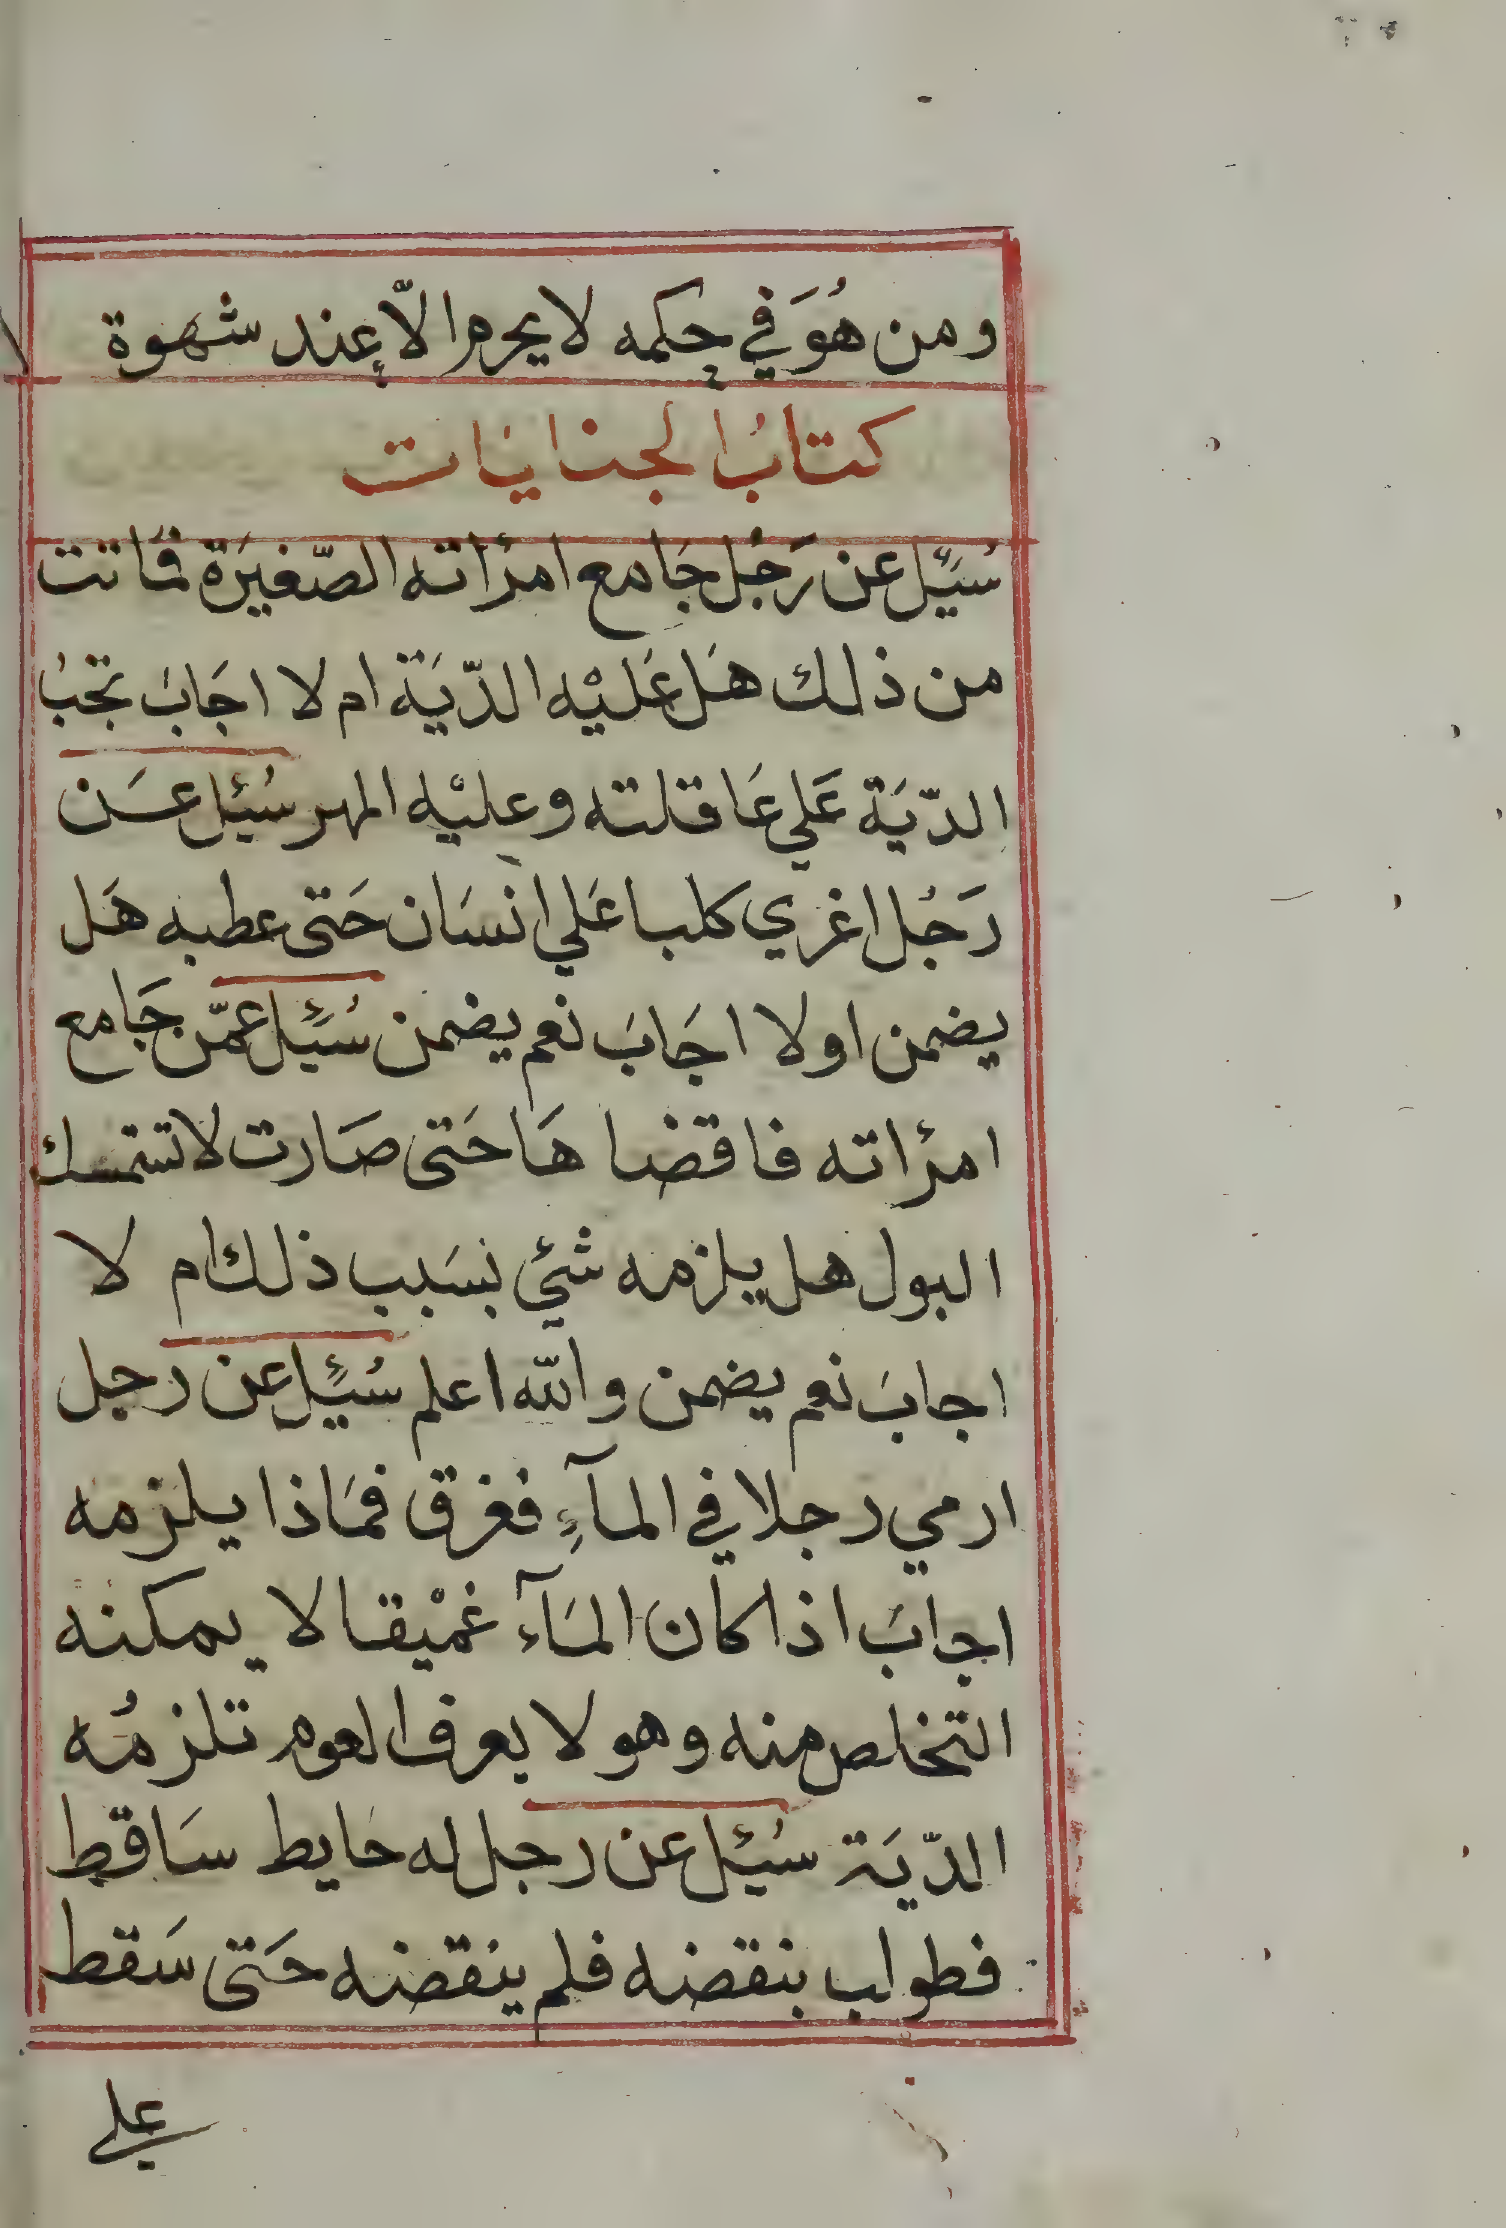 ومن هُوَ في حكمه لا يحرم الّا عند شهوة
كتابُ الجنايَات
سُئِل عن رَجُل جَامع امرأته الصّغيرَة فمَاتت
من ذلك هَل عَليْه الدّيَة ام لا اجَابَ تجبُ
الدّيَة عَلي عَاقلته وعليْه المهر سُئِل عَن
رَجُل اغري كلبا علَي انسَان حَتى عطبه هَل
يضمن اولا اجَابَ نعم يضمن سُئِل عمّن جَامع
امرأته فاقضاهَا حَتى صَارت لا تستمسك
البول هل يلزمه شئي بسَبب ذلك ام لا
اجابَ نعم يضمن والله اعلم سُئِل عن رجل
ارمي رجلا في المآءِ فغرق فمَاذا يلزمه
اجابَ اذا كان المَآء غمْيقا لا يمكنه
التخلص منه وهو لا يعرف العوم تلزمُه
الدّيَة سُئِل عن رجل له حايط سَاقط
فطولب بنقضه فلم ينقضه حَتى سَقط
علي